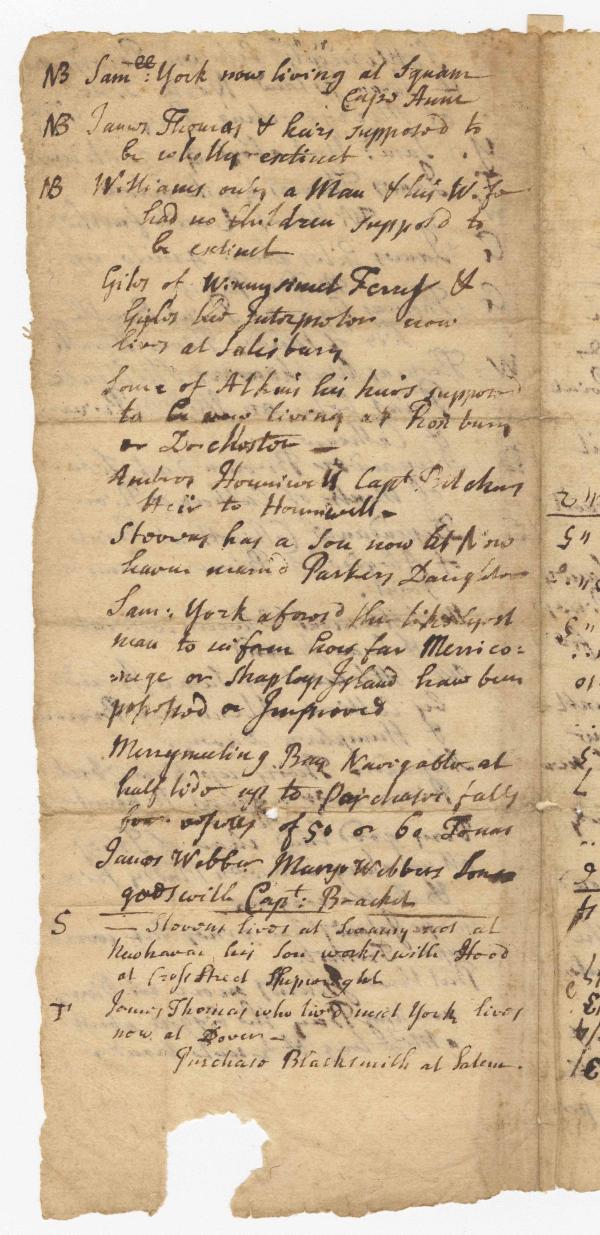 NB Sam^ll: York now living at Squam
Cape Anne
NB James Thomas & heirs supposed to
be wholly extinct
NB Williams only a Man & his Wife
had no Children suppos'd to
be extinct
Giles of Winnysimet Ferry &
Giles the Interpreter now
lives at Salisbury
Some of Atkins his heirs suppos'd
to be now living at Roxbury
or Dorchester —
Ambros Hunniwell Capt
Heir to Hunniwell —
Stevens has a Son now at New
haven marri'd Parkers Daughter
Sam: York afores'd the likelyest
man to inform how far Merrico=
=nege or Shapleys Island have been
possessed or Improved
Merrymeeting Bay Navigable at
half tide up to Purchases falls
for of 50 or 60 Tonns
James Webber Mary Webbers Son
goes with Capt: Bracket
S — Stevens lives at Swanny not at
Newhaven his Son works with Hood
at Cross Street Shipwright
T James Thomas who liv'd next York lives
now at Dover —
Purchase Blacksmith at Salem.